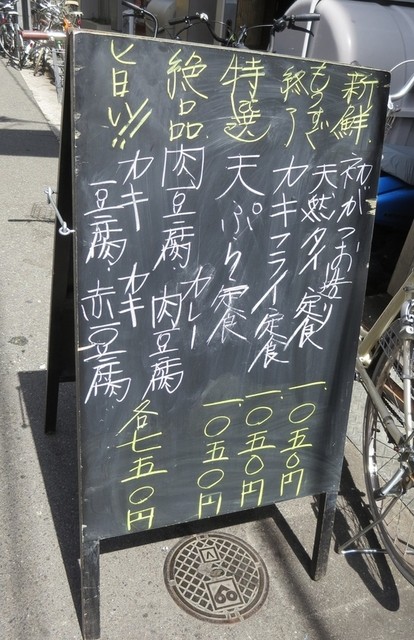 新鮮 初がつお造り
天然タイ定食 一、〇五〇円
もうすぐ終了 カキフライ定食 一、〇五〇円
特選 天ぷら定食 一、〇五〇円
絶品 肉豆腐、カレー肉豆腐
旨い!! カキ豆腐、カキ赤豆腐
各七五〇円